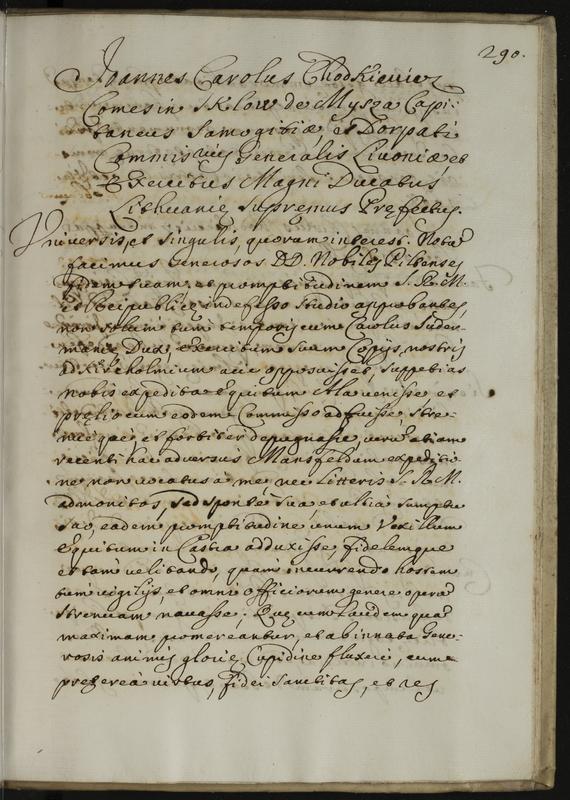 290.
Joannes Carolus Chodkieuicz
Comes in SKlow de Mysza Capi:
taneus Samogitiæ, et Dorpati
Commissarius Generalis Liuoniæ et
Exercitus Magni Ducatus
Lithuanię Supremus Pręfectus.
Vniuersis, et singulis, quorum interest. Nota
facimus Generosos DD. Nobiles Piltenses
fidem suam, et promptitudinem S. R. M.
et Reipublicę indefesso studio approbantes,
non solum tum temporis cum Carolus Suder-
manię Dux, exercitum suum Copijs nostris
ad Kirkholmium acie opposuisset, suppetias
nobis expedita Equitum Ala uenisse et
pręlio cum eodem Commisso adfuisse, stre-
nue què, et fortiter depugnasse, uerum etiam
recenti hac aduersus Mansfeldum expeditio-
ne non uocatos à me, nec Litteris S. R. M.
admonitos, sed sponte sua, et
suo, eadem promptitudine unum Vexillum
Equitum in Castra adduxisse, fidelemque
et tam uelitando, quam incurrendo hostem
tum uigilijs, et omni officiorum genere operam
strenuam nauasse; Quę cum Laudem quam
maximam promereantur, et ab innata Gene-
rosis animis glorię Cupidine fluxerit, cum
pręterea uirtus, fidei sanctitas, et res